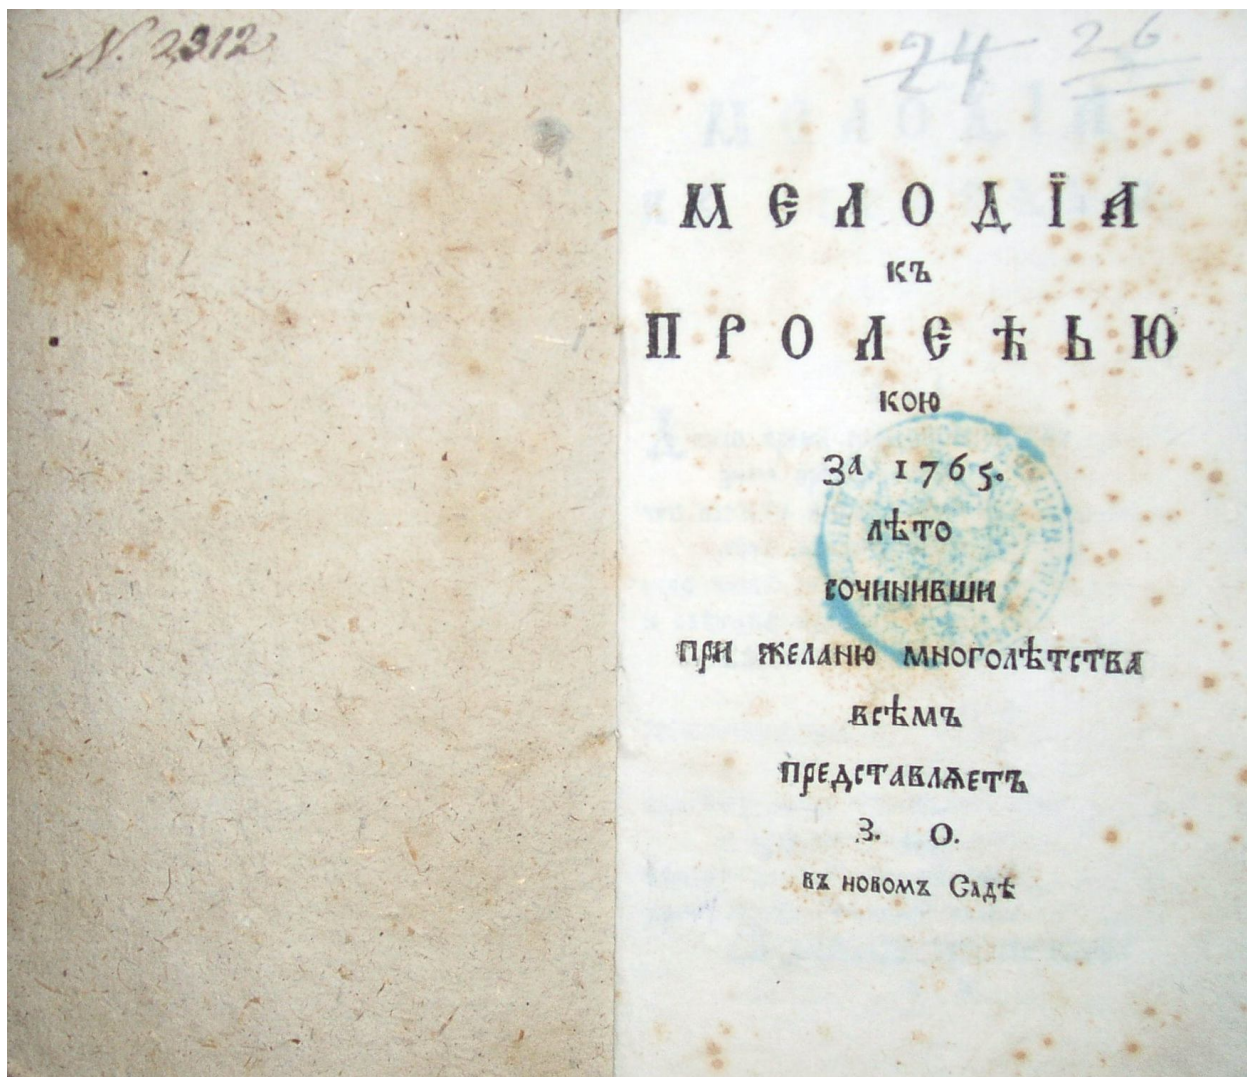 N. 2312
24 26
МЕЛОДЇА
къ
ПРОЛЕЋЬЮ
кою
За 1765.
лѣто
сочинивши
при желаню многолѣтства
всѣмъ
представлѧетъ
З. О.
въ новомъ Садѣ